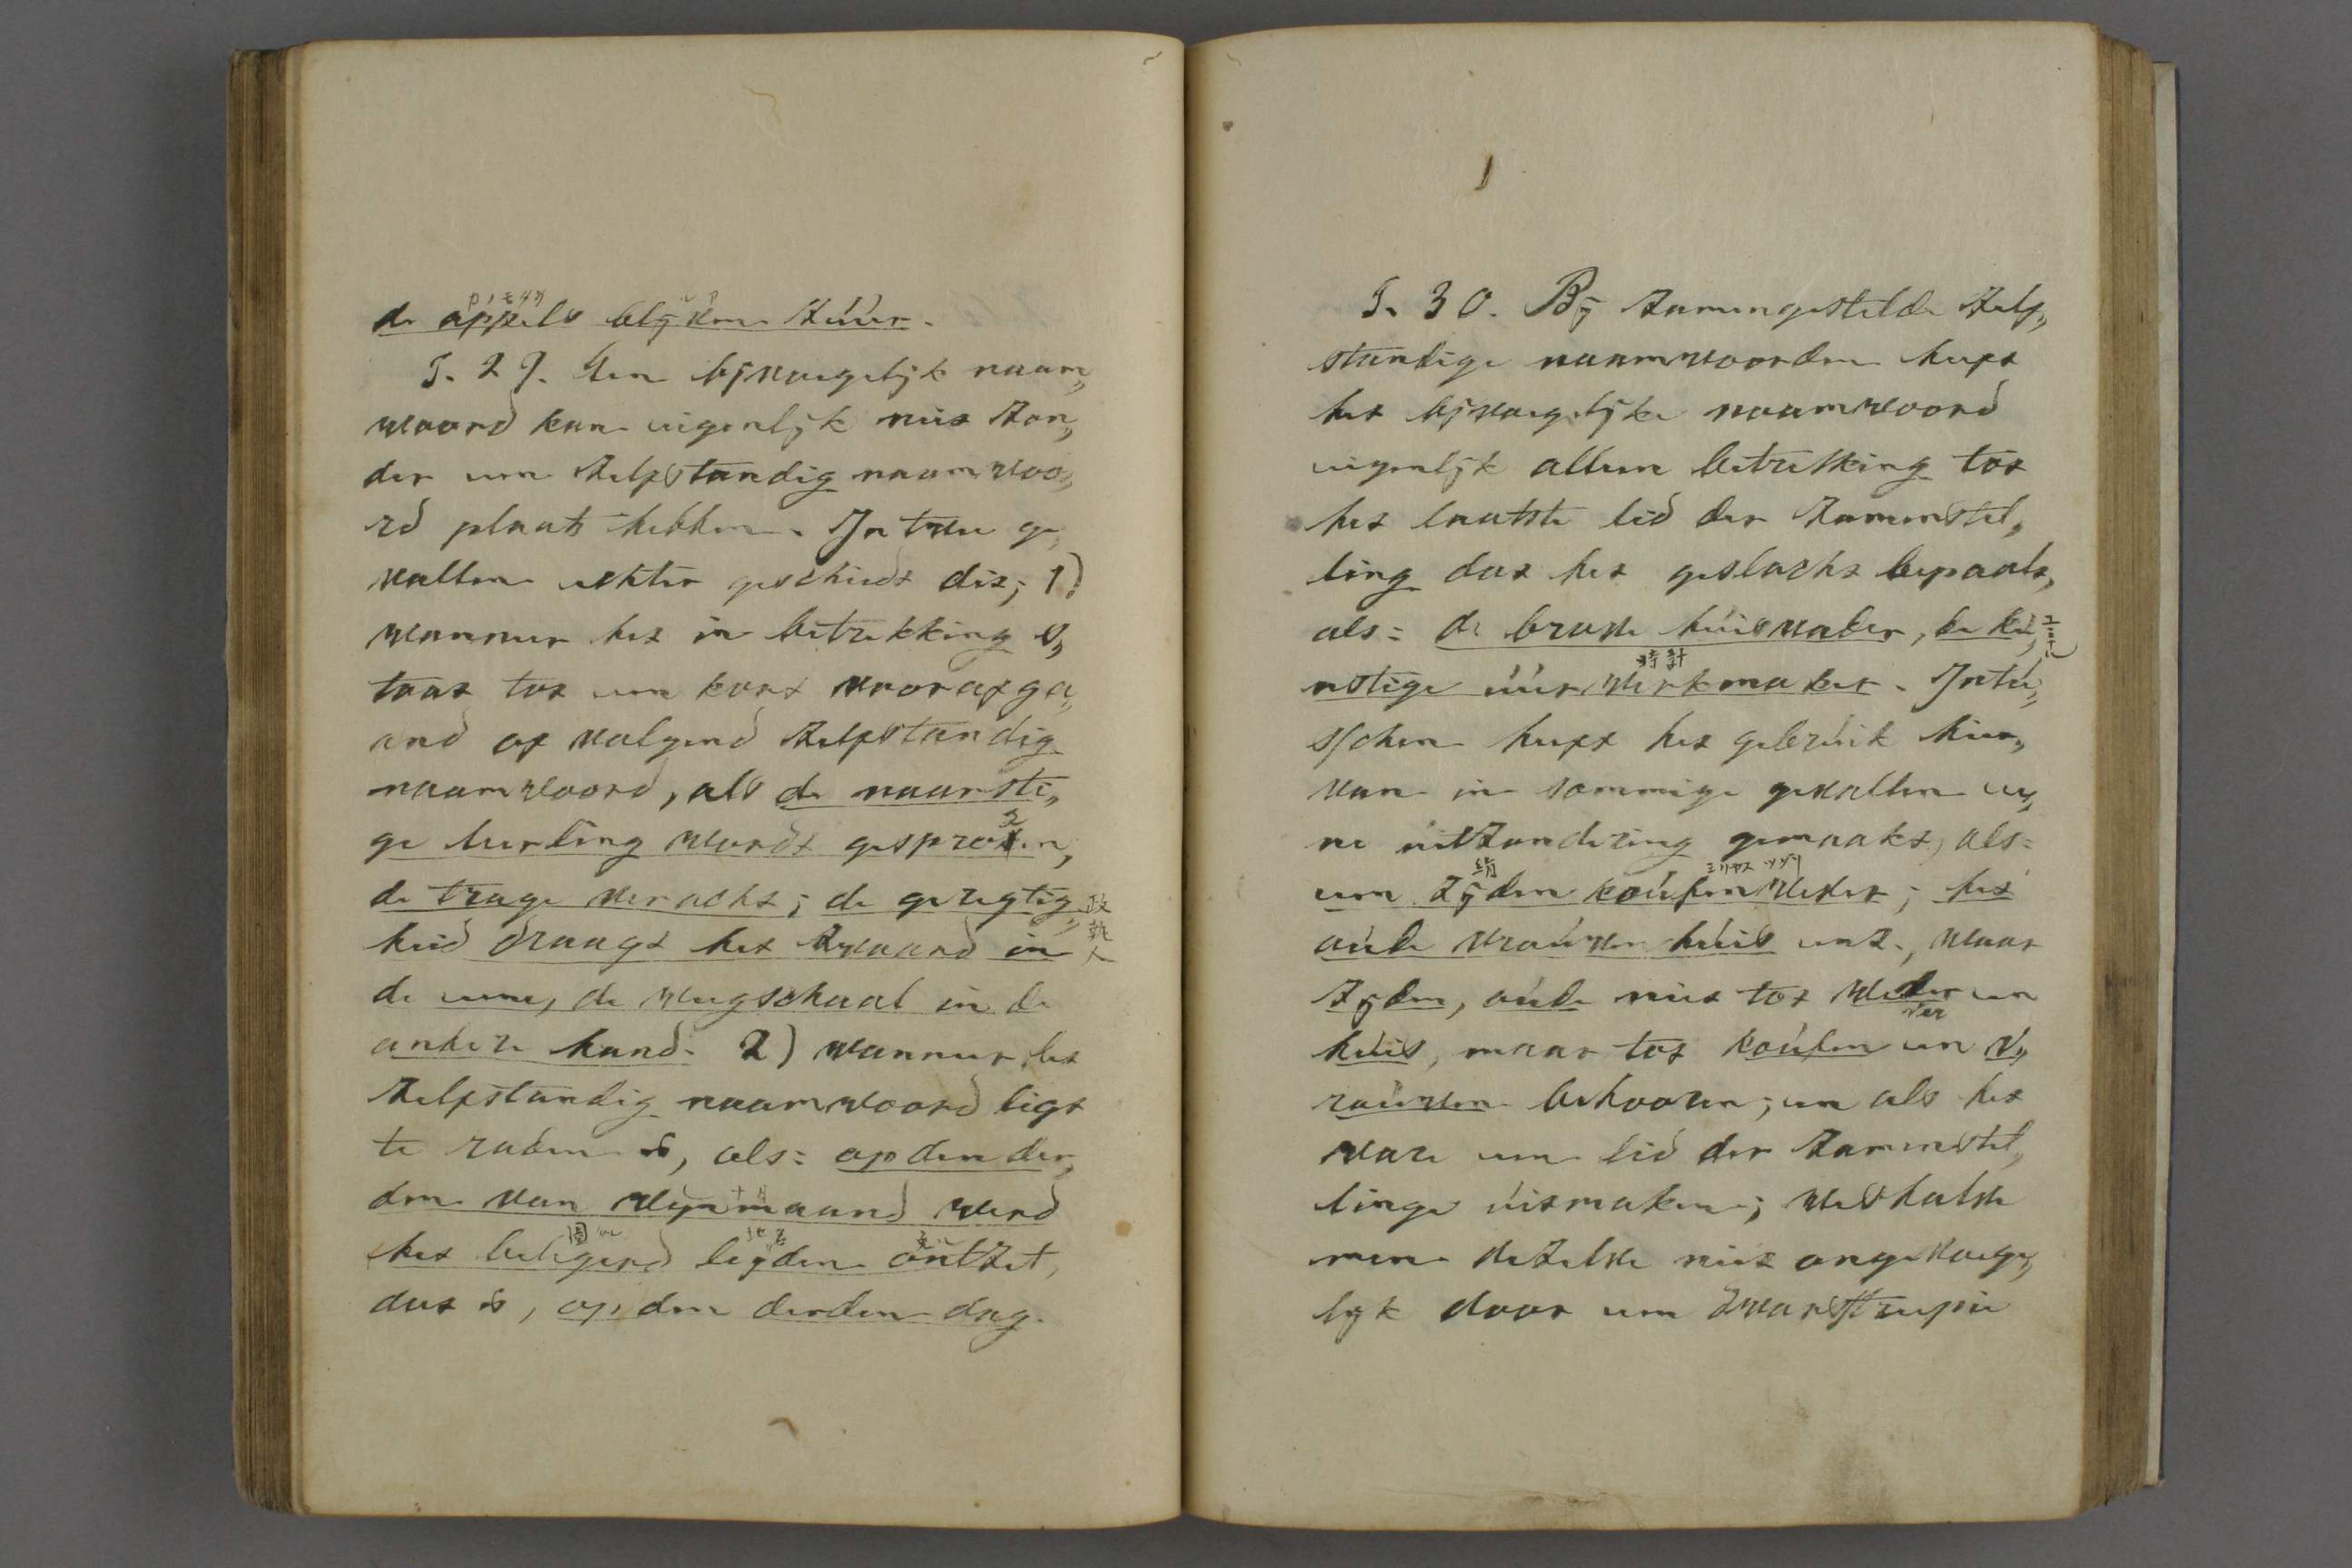 de appels blijken zúúr.
§. 29. Een bijvoegelijk naam„
woord kan eigenlijk niet zon„
der een zelfstandig naamwoo„
rd plaats hebben. In twee ge„
vallen echter geschiedt dit; 1)
wanneer het in betrekking s„
taat tot een kort voorafga„
and of volgend zelfstandig
naamwoord, als de naarsti„
ge leerling wordt geprezen,
de trage veracht; de geregtig„
heid draagt het zwaard in
政執人
de eene, de weegschaal in de
andere hand. 2) wanneer het
zelfstandig naamwoord ligt
te raden is, als: op den der„
十月
den van wijnmaand werd
地名
het belegerd leyden ontzet,
dat is, op den derden dag.
§. 30. Bij zamengestelde zelf„
standige naamwoorden heeft
het bijvoegelijke naamwoord
eigenlijk alleen betrekking tot
het laatste lid der zamenstel„
ling dat het geslacht bepaalt,
als: de brave húisvader, de kú„
時計
nstige úúrwerkmaker. Intú„
sschen heeft het gebrúik hier„
van in sommige gevallen ee„
ne uitzondering gemaakt, als:
絹
een zijden koúsenwever; het
oúde vroúwenhúis enz., waar
zijden, oúde niet tot wever en
ver
húis, maar tot koúsen en v„
roúwen behooren, en als het
ware een lid der zamenstel„
linge úitmaken; weshalve
men dezelve niet ongevoege„
lijk door een dwarsstreepje